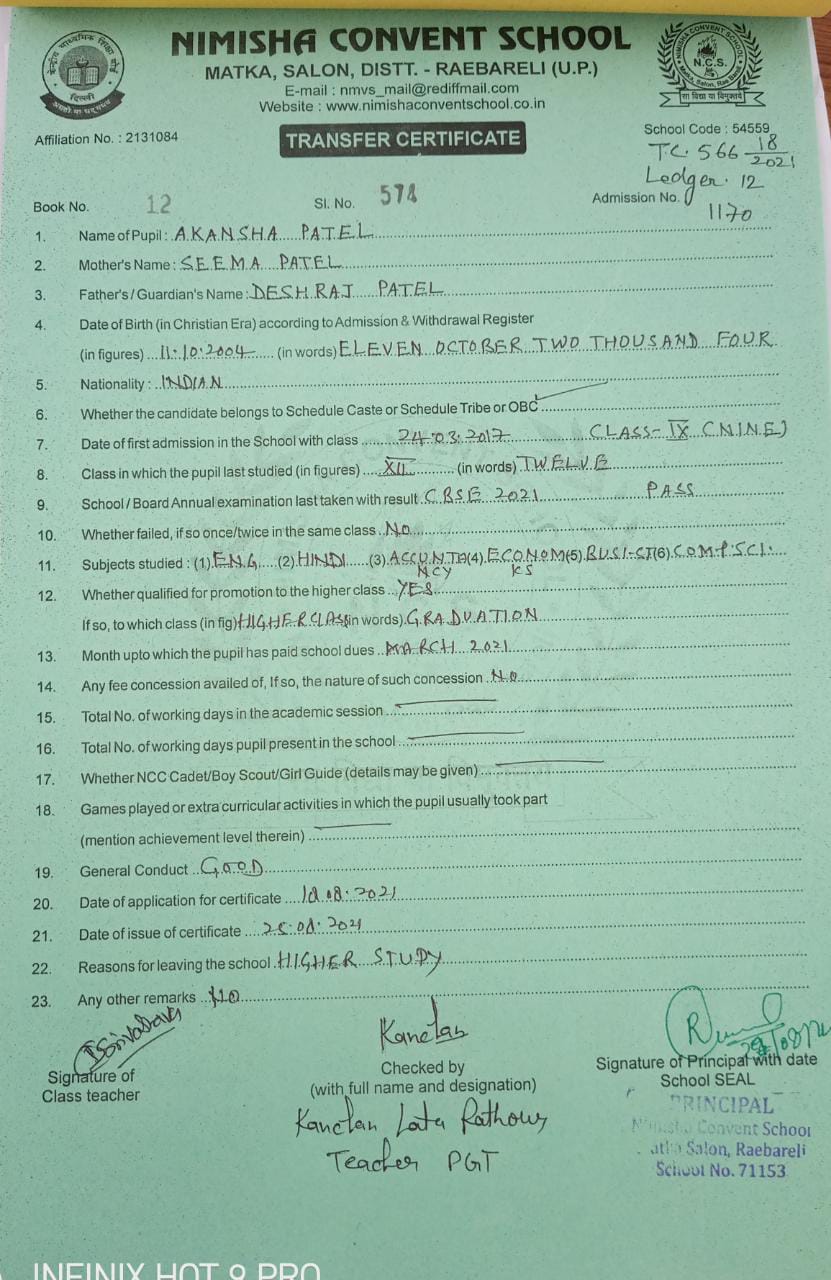 NIMISHA CONVENT SCHOOL
MATKA, SALON, DISTT. - RAEBARELI (U.P.)
E-mail : nmvs_mail@rediffmail.com
Website : www.nimishaconventschool.co.in
केन्द्रीय माध्यमिक शिक्षा बोर्ड
दिल्ली
असतो मा सद्गमय
NIMISHA CONVENT SCHOOL
N.C.S.
सा विद्या या विमुक्तये
Affiliation No. : 2131084
TRANSFER CERTIFICATE
School Code : 54559
T.C. 566 18/2021
Ledger. 12
Book No. 12 Sl. No. 574 Admission No. 1170
1. Name of Pupil : AKANSHA PATEL
2. Mother's Name : SEEMA PATEL
3. Father's / Guardian's Name : DESHRAJ PATEL
4. Date of Birth (in Christian Era) according to Admission & Withdrawal Register
(in figures) 11.10.2004 (in words) ELEVEN OCTOBER TWO THOUSAND FOUR
5. Nationality : INDIAN
6. Whether the candidate belongs to Schedule Caste or Schedule Tribe or OBC
7. Date of first admission in the School with class 24.03.2017 CLASS-IX (NINE)
8. Class in which the pupil last studied (in figures) XII (in words) TWELVE
9. School / Board Annual examination last taken with result CBSE 2021 PASS
10. Whether failed, if so once/twice in the same class NO
11. Subjects studied : (1) ENG (2) HINDI (3) ACCUNTA (4) ECONOM (5) BUSI-ST (6) COMP.SCI.
NCY KS
12. Whether qualified for promotion to the higher class YES
If so, to which class (in fig) HIGHER CLASS (in words) GRADUATION
13. Month upto which the pupil has paid school dues MARCH 2021
14. Any fee concession availed of, If so, the nature of such concession NO
15. Total No. of working days in the academic session
16. Total No. of working days pupil present in the school
17. Whether NCC Cadet/Boy Scout/Girl Guide (details may be given)
18. Games played or extra curricular activities in which the pupil usually took part
(mention achievement level therein)
19. General Conduct GOOD
20. Date of application for certificate 18.08.2021
21. Date of issue of certificate 25.08.2021
22. Reasons for leaving the school HIGHER STUDY
23. Any other remarks NO
Signature of
Class teacher
Kanchan
Checked by
(with full name and designation)
Kanchan Lata Rathour
Teacher PGT
Signature of Principal with date
School SEAL
PRINCIPAL
Nimisha Convent School
Salon, Raebareli
School No. 71153
INFINIX HOT 9 PRO